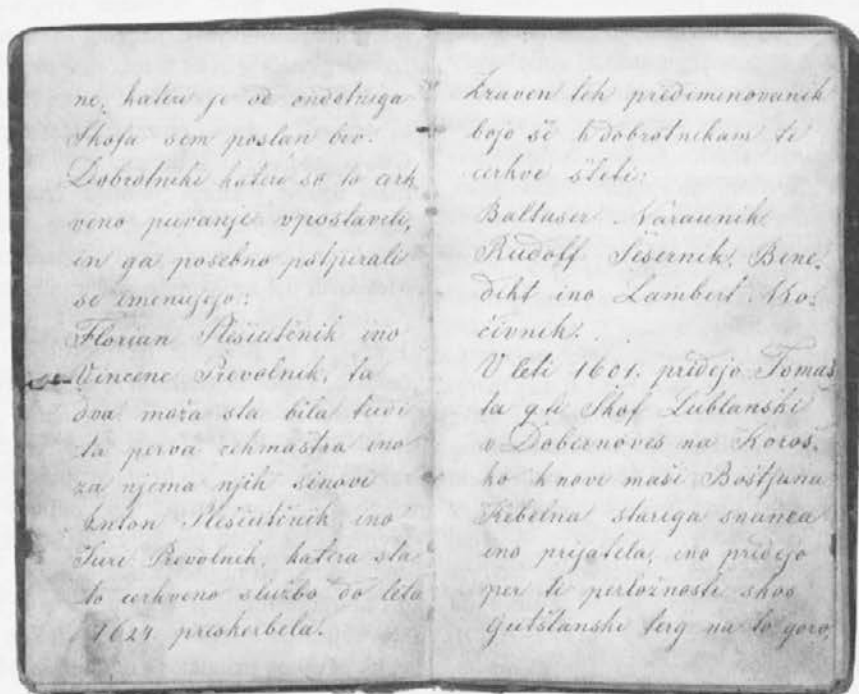 ne, katiri je od ondotniga
Shofa sem poslan bio.
Dobrotniki kateri so to cerk
veno puvanje vpostavili,
in ga posebno potpirali
se imenujejo:
Florian Plesiučnik ino
Vincenc Prevolnik, ta
dva moža sta bila tudi
ta perva cehmaštra ino
za njema njih sinovi
Anton Plesiučnik ino
Juri Prevolnik, katera sta
to cerkveno službo do leta
1624 preskerbela.
Zraven teh predimenovanih
bojo še k dobrotnikam te
cerkve šteti:
Baltaser Náraunik
Rudolf Sešernik, Bene-
dikt ino Lambert
V leti 1601. pridejo Tomaš
ta g ti Shof Lublanski
v Dobernoves na Koroš-
ko k novi maši Boštjana
stariga snanca
ino prijatela, ino pridejo
per ti perložnosti skos
Gutštanski terg na to goro,